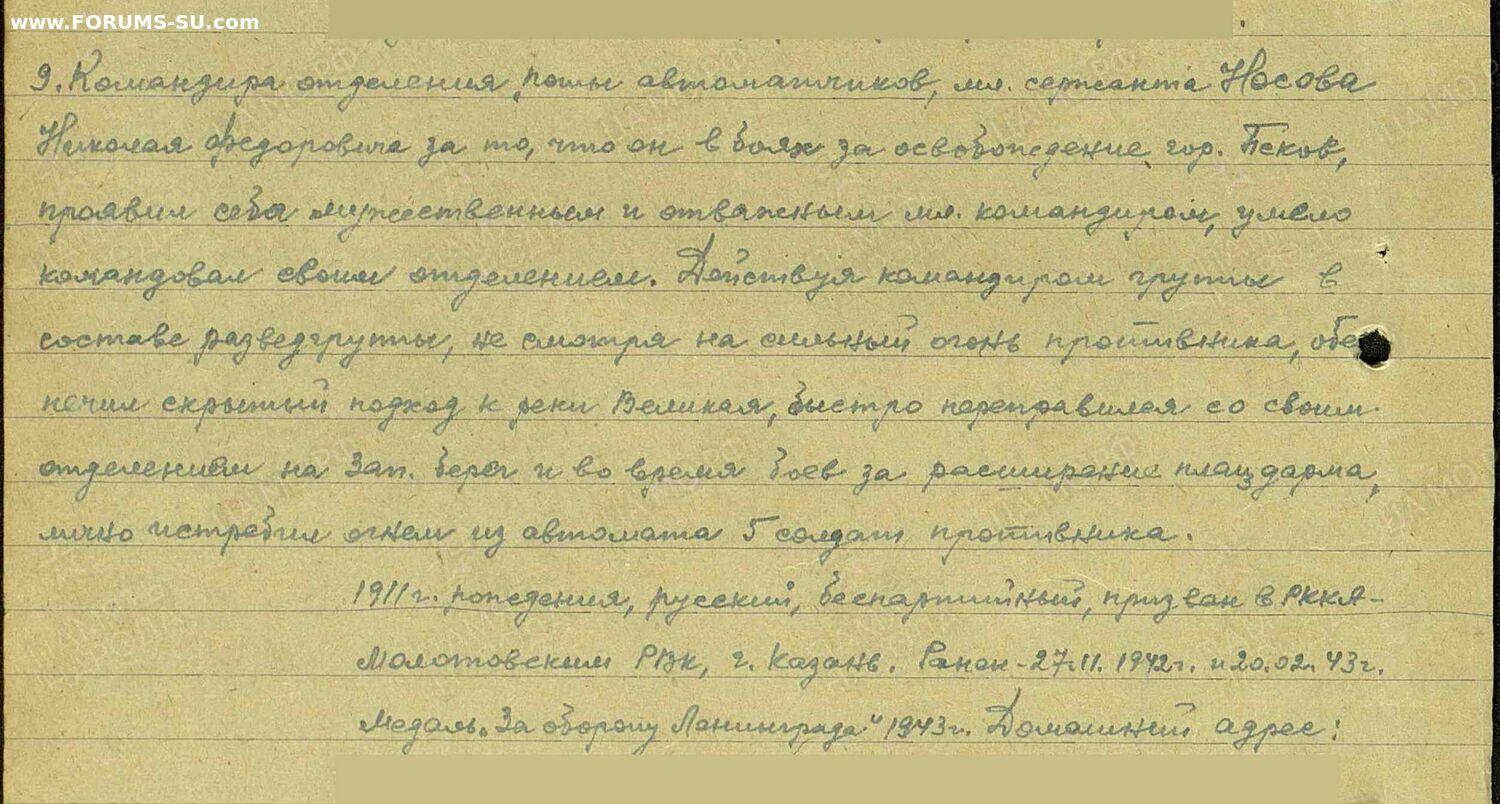 www.FORUMS-SU.com
9. Командира отделения, роты автоматчиков, мл. сержанта Носова
Николая Федоровича за то, что он в боях за освобождение гор. Псков,
проявил себя мужественным и отважным мл. командиром, умело
командовал своим отделением. Действуя командиром группы в
составе разведгруппы, не смотря на сильный огонь противника, обес
печил скрытый подход к реки Великая, быстро переправился со своим
отделением на Зап. берег и во время боев за расширение плацдарма,
лично истребил огнем из автомата 5 солдат противника.
1911 г. рождения, русский, беспартийный, призван в РККА-
Молотовским РВК, г. Казань. Ранен - 27.11. 1942 г. и 20.02.43 г.
Медаль „За оборону Ленинграда" 1943 г. Домашний адрес: